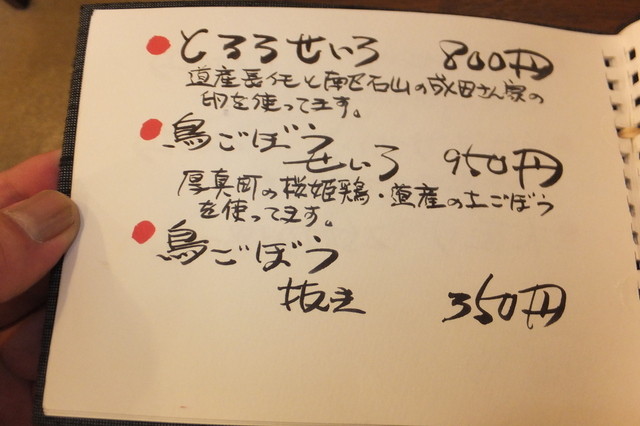 とろろせいろ 800円
道産長芋と南区石山の成田さん家の
卵を使ってます。
鳥ごぼう
せいろ 950円
厚真町の桜姫鶏・道産の土ごぼう
を使ってます。
鳥ごぼう
抜き 350円